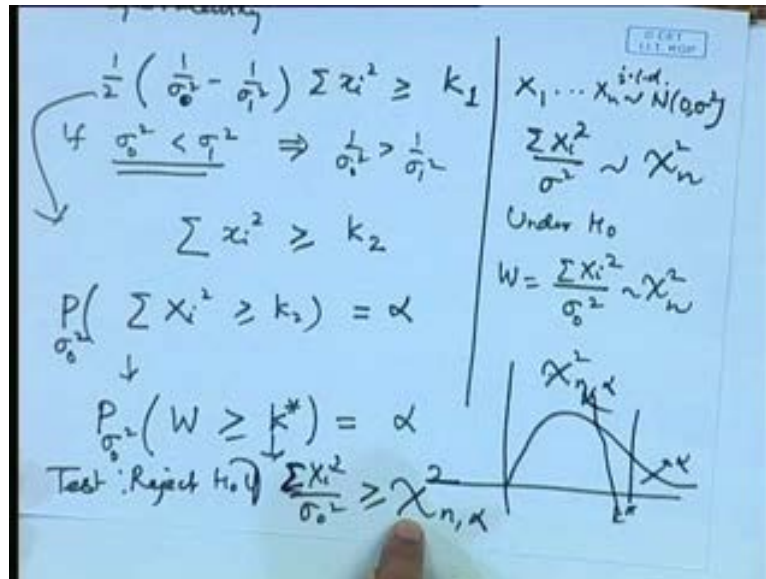 1/2 ( 1/σ₀² - 1/σ₁² ) Σ xᵢ² ≥ k₁
If σ₀² < σ₁² ⇒ 1/σ₀² > 1/σ₁²
Σ xᵢ² ≥ k₂
P_σ₀² ( Σ Xᵢ² ≥ k₂ ) = α
↓
P_σ₀² ( W ≥ k* ) = α
Test : Reject H₀ if ΣXᵢ²/σ₀² ≥ χ²ₙ,α
X₁ ... Xₙ i.i.d. ~ N(0,σ²)
ΣXᵢ²/σ² ~ χ²ₙ
Under H₀
W = ΣXᵢ²/σ₀² ~ χ²ₙ
χ²ₙ,α
α
I.I.T. KGP